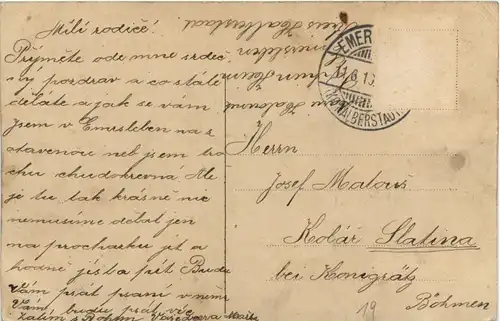 Milí rodiče!
Přijměte ode mne srdeč
ný pozdrav a co stále
děláte a jak se vám
Jsem v Emrsleben na z
otavenou neb jsem tro
chu chudokrevna Ale
je tu tak krásně nic
nemusíme dělat jen
na procházku jít a
hodně jíst a pít Budu
Vám psát psaní v něm
Vám budu psát víc
Zatím s Bohem Vaše dcera
Halberstadt
EMER
11.6.1
HALBERSTADT
Herrn
Josef Matouš
Kolář Slatina
bei Königrätz
Böhmen
19